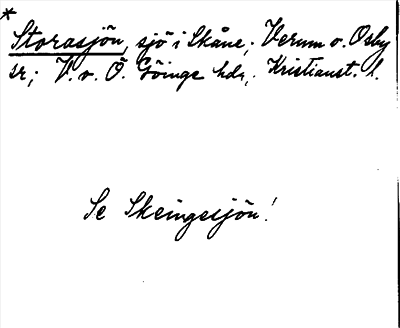 *
Storasjön, sjö i Skåne; Verum o. Osby
sr; V. o. Ö. Göinge hdr; Kristianst. l.
Se Skeingesjön!